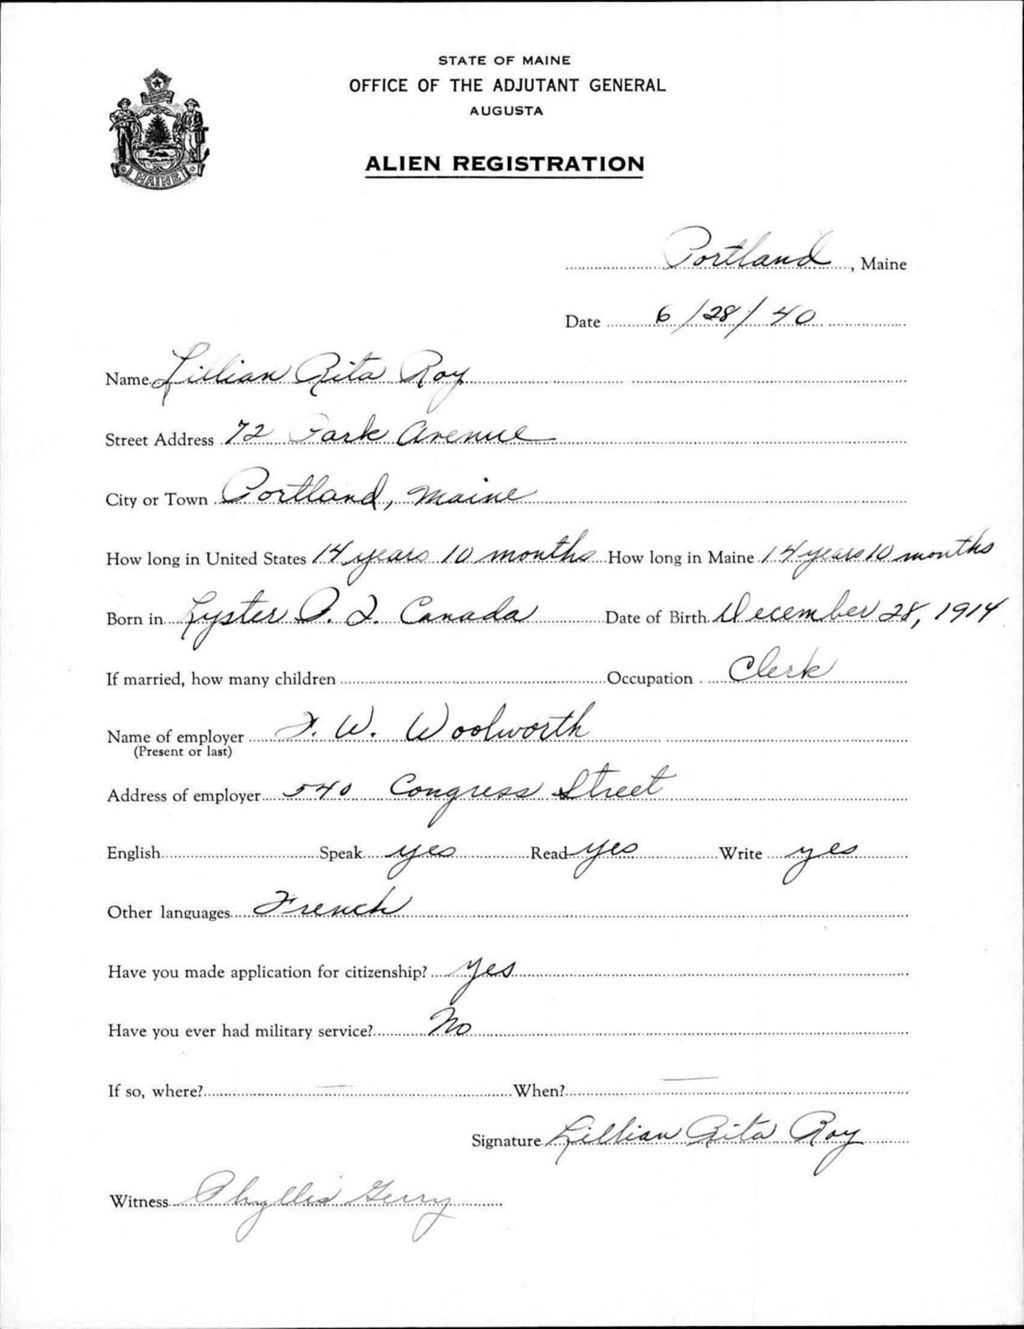 STATE OF MAINE
OFFICE OF THE ADJUTANT GENERAL
AUGUSTA
ALIEN REGISTRATION
MAINE
Portland, Maine
Date 6/28/40
Name Lillian Rita Roy
Street Address 72 Park Avenue
City or Town Portland, Maine
How long in United States 14 years 10 months How long in Maine 14 years 10 months
Born in Lyster P. Q. Canada Date of Birth December 28, 1914
If married, how many children Occupation Clerk
Name of employer F. W. Woolworth
(Present or last)
Address of employer 540 Congress Street
English Speak yes Read yes Write yes
Other languages French
Have you made application for citizenship? Yes
Have you ever had military service? No
If so, where? — When? —
Signature Lillian Rita Roy
Witness Phyllis Gerry